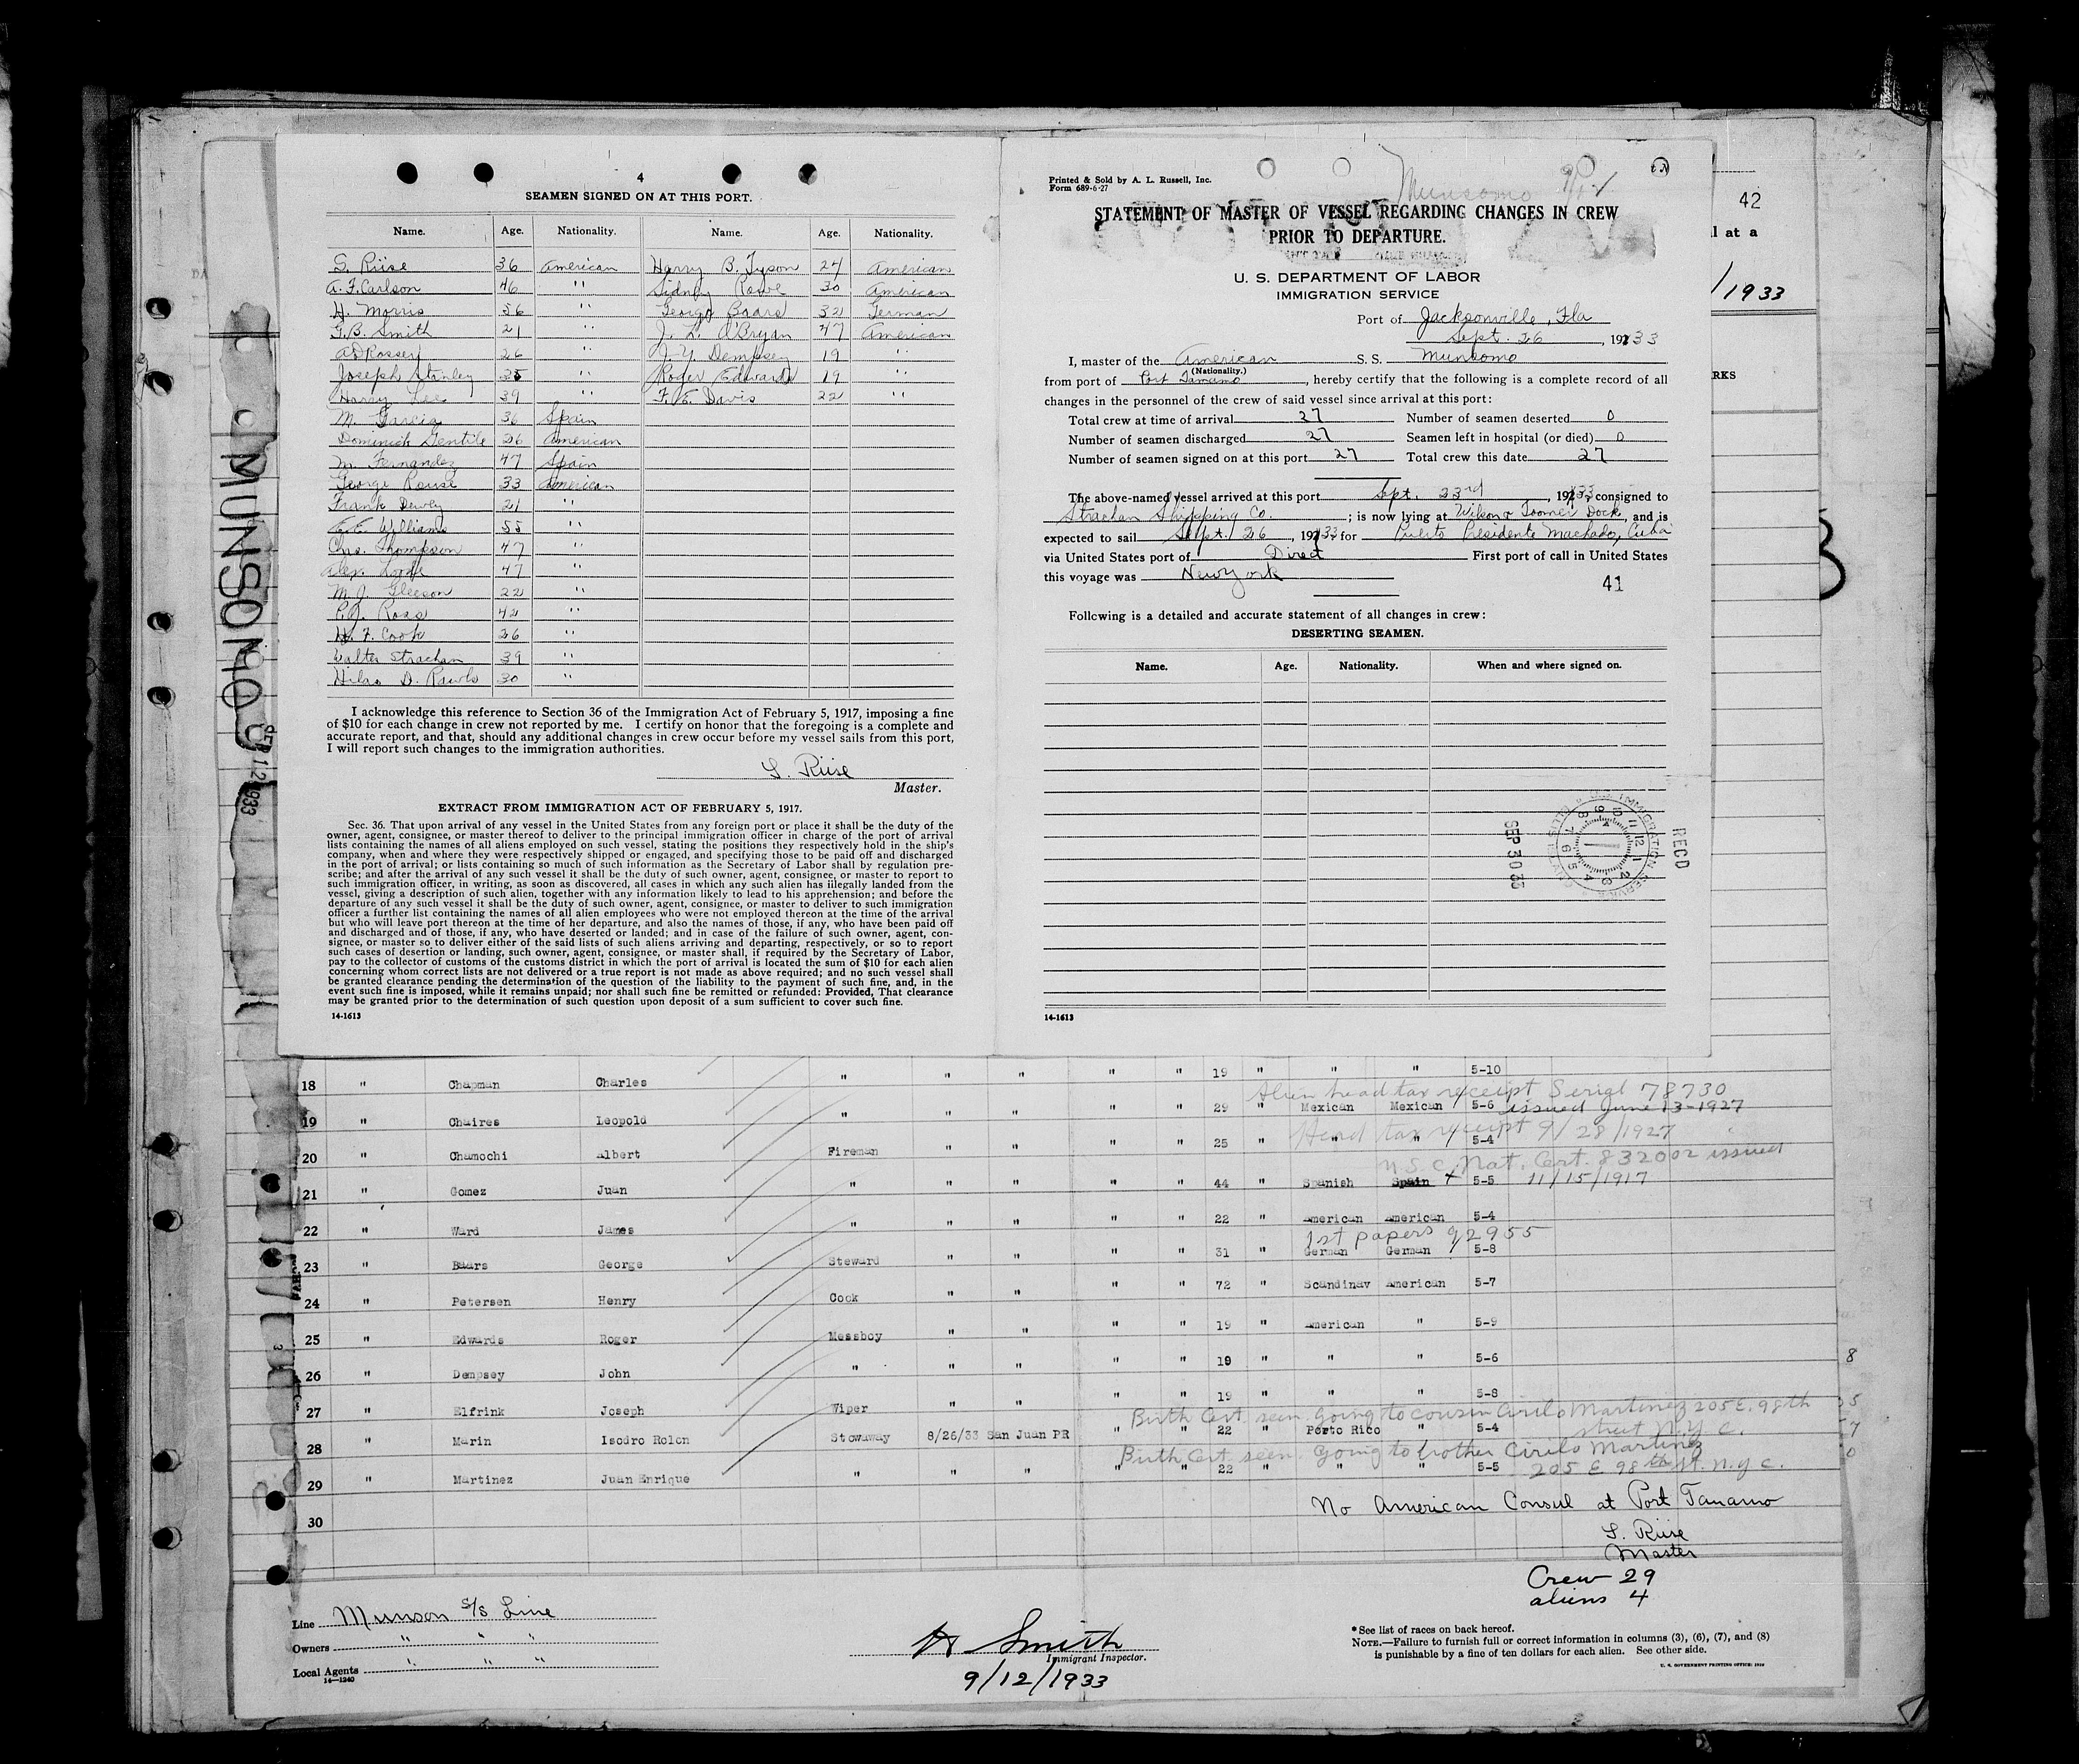 4
SEAMEN SIGNED ON AT THIS PORT.
Name. Age. Nationality. Name. Age. Nationality.
S. Riise 36 American Harry B. Tyson 27 American
A. F. Carlson 46 " Sidney Rowe 30 American
H. Morris 56 " George Baars 32 German
G. B. Smith 21 " J. L. O'Bryan 47 American
A D Rosser 26 " J. Y. Dempsey 19 "
Joseph Stanley 35 " Roger Edwards 19 "
Harry Lee 39 " F. E. Davis 22 "
M. Garcia 36 Spain
Dominick Gentile 26 American
M. Fernandez 47 Spain
George Rouse 33 American
Frank Dewey 21 "
Williams 55 "
Chas. Thompson 47 "
Alex. 47 "
M. J. Gleeson 22 "
P. J. Ross 42 "
H. F. Cook 26 "
Walter Strachan 39 "
Hilas D. Rawls 30 "
I acknowledge this reference to Section 36 of the Immigration Act of February 5, 1917, imposing a fine
of $10 for each change in crew not reported by me. I certify on honor that the foregoing is a complete and
accurate report, and that, should any additional changes in crew occur before my vessel sails from this port,
I will report such changes to the immigration authorities.
S. Riise
Master.
EXTRACT FROM IMMIGRATION ACT OF FEBRUARY 5, 1917.
Sec. 36. That upon arrival of any vessel in the United States from any foreign port or place it shall be the duty of the
owner, agent, consignee, or master thereof to deliver to the principal immigration officer in charge of the port of arrival
lists containing the names of all aliens employed on such vessel, stating the positions they respectively hold in the ship's
company, when and where they were respectively shipped or engaged, and specifying those to be paid off and discharged
in the port of arrival; or lists containing so much of such information as the Secretary of Labor shall by regulation pre-
scribe; and after the arrival of any such vessel it shall be the duty of such owner, agent, consignee, or master to report to
such immigration officer, in writing, as soon as discovered, all cases in which any such alien has illegally landed from the
vessel, giving a description of such alien, together with any information likely to lead to his apprehension; and before the
departure of any such vessel it shall be the duty of such owner, agent, consignee, or master to deliver to such immigration
officer a further list containing the names of all alien employees who were not employed thereon at the time of the arrival
but who will leave port thereon at the time of her departure, and also the names of those, if any, who have been paid off
and discharged and of those, if any, who have deserted or landed; and in case of the failure of such owner, agent, con-
signee, or master so to deliver either of the said lists of such aliens arriving and departing, respectively, or so to report
such cases of desertion or landing, such owner, agent, consignee, or master shall, if required by the Secretary of Labor,
pay to the collector of customs of the customs district in which the port of arrival is located the sum of $10 for each alien
concerning whom correct lists are not delivered or a true report is not made as above required; and no such vessel shall
be granted clearance pending the determination of the question of the liability to the payment of such fine, and, in the
event such fine is imposed, while it remains unpaid; nor shall such fine be remitted or refunded: Provided, That clearance
may be granted prior to the determination of such question upon deposit of a sum sufficient to cover such fine.
14-1613
MUNSOMO
SEP 12 1933
Printed & Sold by A. L. Russell, Inc.
Form 689-6-27
Munsomo
STATEMENT OF MASTER OF VESSEL REGARDING CHANGES IN CREW
PRIOR TO DEPARTURE.
U. S. DEPARTMENT OF LABOR
IMMIGRATION SERVICE
Port of Jacksonville, Fla
Sept. 26, 1933
I, master of the American S. S. Munsomo
(Nationality.)
from port of Port Tanamo, hereby certify that the following is a complete record of all
changes in the personnel of the crew of said vessel since arrival at this port:
Total crew at time of arrival 27 Number of seamen deserted 0
Number of seamen discharged 27 Seamen left in hospital (or died) 0
Number of seamen signed on at this port 27 Total crew this date 27
The above-named vessel arrived at this port Sept. 23rd, 1933, consigned to
Strachan Shipping Co.; is now lying at Wilson & Toomer Dock, and is
expected to sail Sept. 26, 1933 for Puerto Presidente Machado, Cuba
via United States port of Direct First port of call in United States
this voyage was New York
41
Following is a detailed and accurate statement of all changes in crew:
DESERTING SEAMEN.
Name. Age. Nationality. When and where signed on.
RECD
U.S. IMMIGRATION SERVICE
SEP 30 33
14-1613
42
l at a
/1933
RKS
18 " Chapman Charles " " " " " 19 " " " 5-10
Alien head tax receipt Serial 78730
19 " Chaires Leopold " " " " " 29 " Mexican Mexican 5-6 issued June 13-1927
Head tax receipt 9/28/1927
20 " Chamochi Albert Fireman " " " " 25 " " " 5-4
U.S.C. Nat. Cert. 832002 issued
21 " Gomez Juan " " " " " 44 " Spanish Spain 5-5 11/15/1917
22 " Ward James " " " " " 22 " American American 5-4
1st papers 92955
23 " Baars George Steward " " " " 31 " German German 5-8
24 " Petersen Henry Cook " " " " 72 " Scandinav American 5-7
25 " Edwards Roger Messboy " " " " 19 " American " 5-9
26 " Dempsey John " " " " " 19 " " " 5-6
27 " Elfrink Joseph Wiper " " " " 19 " " " 5-8
Birth Cert. seen. Going to cousin Cirilo Martinez 205 E. 98th
street N.Y.C.
28 " Marin Isodro Rolon Stowaway 8/26/33 San Juan PR " " 22 " Porto Rico " 5-4
Birth Cert. seen. Going to brother Cirilo Martinez
29 " Martinez Juan Enrique " " " " " 22 " " " 5-5 205 E. 98th St. N.Y.C.
30
No American Consul at Port Tanamo
S. Riise
Master
Crew 29
aliens 4
Line Munson S/S Line
Owners " " "
Local Agents " " "
14—1240
H Smith
Immigrant Inspector.
9/12/1933
* See list of races on back hereof.
NOTE.—Failure to furnish full or correct information in columns (3), (6), (7), and (8)
is punishable by a fine of ten dollars for each alien. See other side.